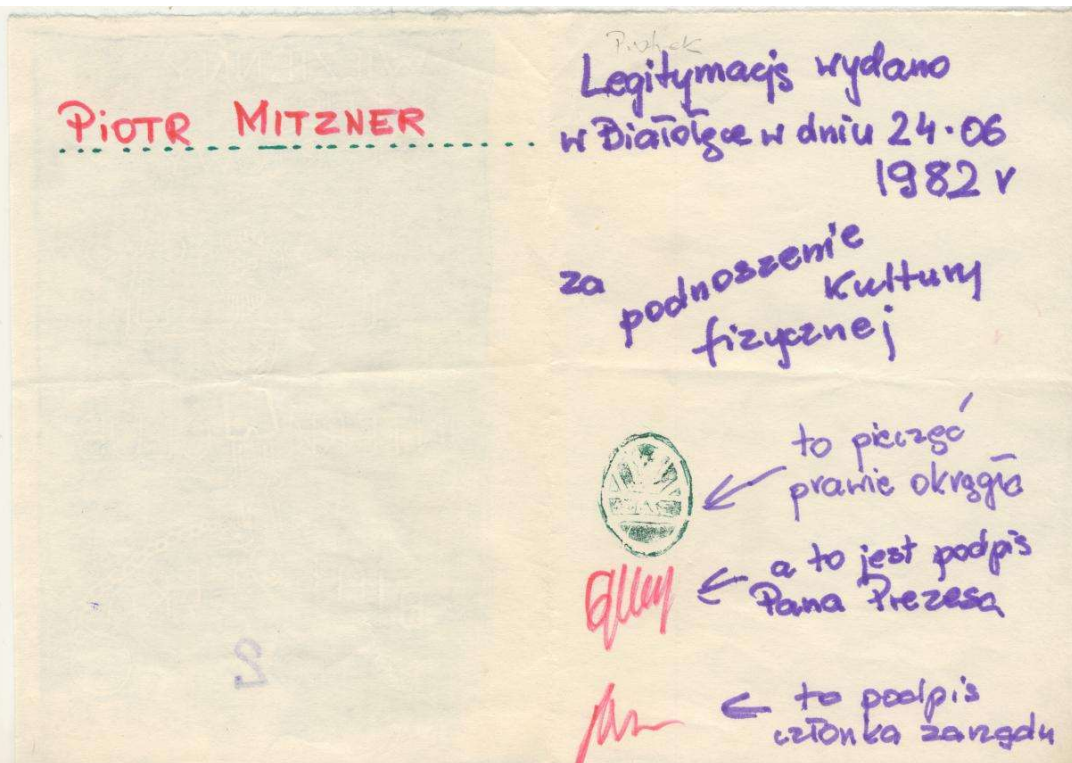 PIOTR MITZNER
Legitymację wydano
w Białołęce w dniu 24·06
1982 r
za podnoszenie
kultury
fizycznej
to pieczęć
prawie okrągła
a to jest podpis
Pana Prezesa
to podpis
członka zarządu
2